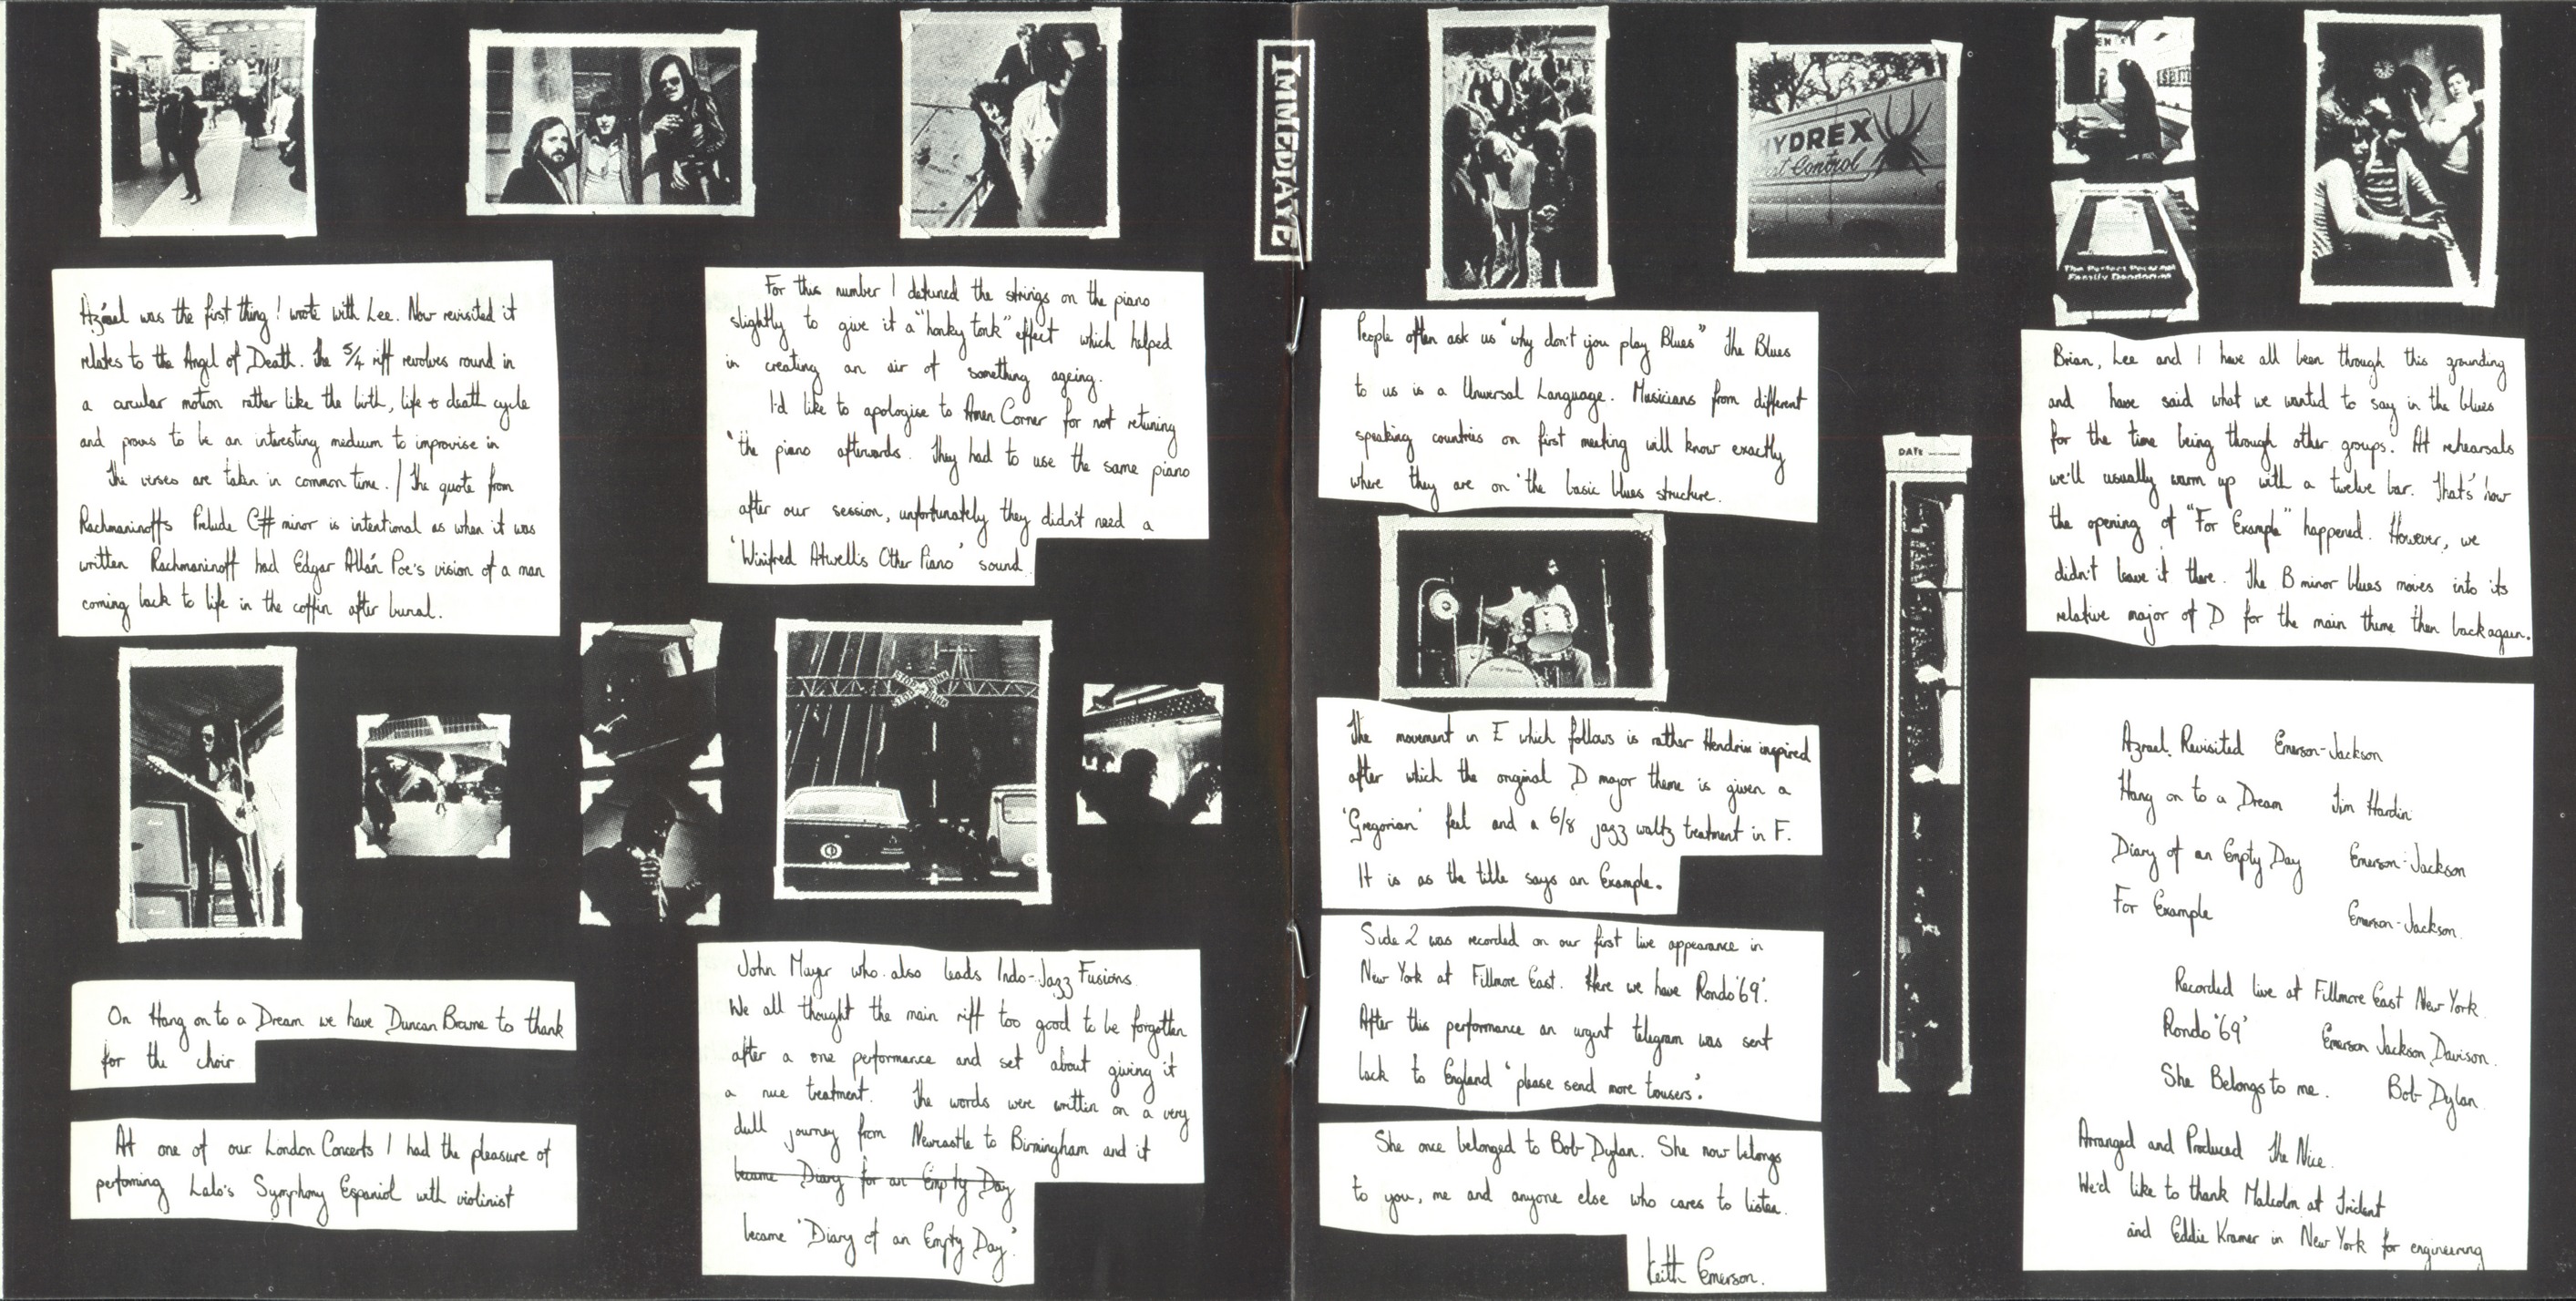 Azrael was the first thing I wrote with Lee. Now revisited it
relates to the Angel of Death. The 5/4 riff revolves round in
a circular motion rather like the birth, life & death cycle
and proves to be an interesting medium to improvise in
The verses are taken in common time. / The quote from
Rachmaninoff's Prelude C# minor is intentional as when it was
written Rachmaninoff had Edgar Allán Poe's vision of a man
coming back to life in the coffin after burial.
On Hang on to a Dream we have Duncan Browne to thank
for the choir
At one of our London Concerts I had the pleasure of
performing Lalo's Symphony Espaniol with violinist
For this number I detuned the strings on the piano
slightly to give it a "honky tonk" effect which helped
in creating an air of something ageing.
I'd like to apologise to Amen Corner for not retuning
the piano afterwards. They had to use the same piano
after our session, unfortunately they didn't need a
'Winifred Atwell's Other Piano' sound.
John Mayer who also leads Indo-Jazz Fusions.
We all thought the main riff too good to be forgotten
after a one performance and set about giving it
a nice treatment. The words were written on a very
dull journey from Newcastle to Birmingham and it
became Diary for an Empty Day
became 'Diary of an Empty Day'.
IMMEDIATE
HYDREX
Control
People often ask us "why don't you play Blues" The Blues
to us is a Universal Language. Musicians from different
speaking countries on first meeting will know exactly
where they are on the basic blues structure.
The movement in E which follows is rather Hendrix inspired
after which the original D major theme is given a
'Gregorian' feel and a 6/8 jazz waltz treatment in F.
It is as the title says an Example.
Side 2 was recorded on our first live appearance in
New York at Fillmore East. Here we have Rondo '69'.
After this performance an urgent telegram was sent
back to England 'please send more trousers'.
She once belonged to Bob Dylan. She now belongs
to you, me and anyone else who cares to listen.
Keith Emerson.
DATE
The Perfect Personal
Family Dendarias
Brian, Lee and I have all been through this grounding
and have said what we wanted to say in the blues
for the time being through other groups. At rehearsals
we'll usually warm up with a twelve bar. That's how
the opening of "For Example" happened. However, we
didn't leave it there. The B minor blues moves into its
relative major of D for the main theme then back again.
Azrael Revisited Emerson-Jackson
Hang on to a Dream Tim Hardin
Diary of an Empty Day Emerson-Jackson
For Example Emerson-Jackson.
Recorded live at Fillmore East New York.
Rondo '69' Emerson Jackson Davison.
She Belongs to me. Bob Dylan.
Arranged and Produced The Nice.
We'd like to thank Malcolm at Trident
and Eddie Kramer in New York for engineering